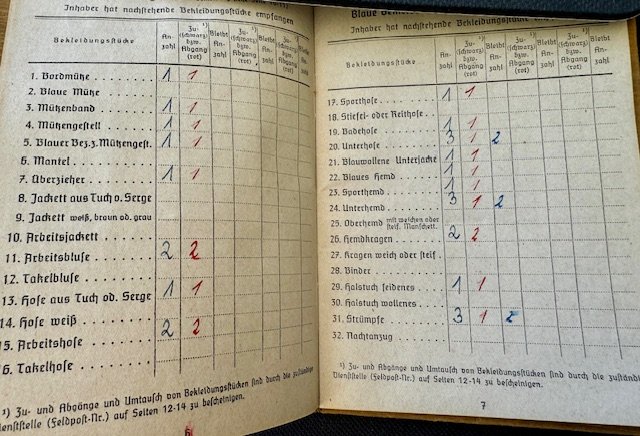 Inhaber hat nachstehende Bekleidungsstücke empfangen
Bekleidungsstücke An-zahl Zu-¹) (schwarz) bzw. Abgang (rot) Bleibt An-zahl Zu-¹) (schwarz) bzw. Abgang (rot) Bleibt An-zahl Zu-¹) (schwarz) bzw. Abgang (rot) Bleibt An-zahl
1. Bordmütze 1 1
2. Blaue Mütze
3. Mützenband 1 1
4. Mützengestell 1 1
5. Blauer Bez. z. Mützengest. 1 1
6. Mantel
7. Überzieher 1 1
8. Jackett aus Tuch o. Serge
9. Jackett weiß, braun od. grau
10. Arbeitsjackett
11. Arbeitsbluse 2 2
12. Takelbluse
13. Hose aus Tuch od. Serge 1 1
14. Hose weiß
15. Arbeitshose 2 2
16. Takelhose
¹) Zu- und Abgänge und Umtausch von Bekleidungsstücken sind durch die zuständige
Dienststelle (Feldpost-Nr.) auf Seiten 12-14 zu bescheinigen.
6
Blaue
Inhaber hat nachstehende Bekleidungsstücke
Bekleidungsstücke An-zahl Zu-¹) (schwarz) bzw. Abgang (rot) Bleibt An-zahl Zu-¹) (schwarz) bzw. Abgang (rot) Bleibt An-zahl Zu-¹) (schwarz) bzw. Abgang (rot) Bleibt An-zahl
17. Sporthose 1 1
18. Stiefel- oder Reithose
19. Badehose 1 1
20. Unterhose 3 1 2
21. Blauwollene Unterjacke 1 1
22. Blaues Hemd 1 1
23. Sporthemd 1 1
24. Unterhemd 3 1 2
25. Oberhemd mit weichen oder steif. Manschett.
26. Hemdkragen 2 2
27. Kragen weich oder steif
28. Binder
29. Halstuch seidenes 1 1
30. Halstuch wollenes
31. Strümpfe 3 1 2
32. Nachtanzug
¹) Zu- und Abgänge und Umtausch von Bekleidungsstücken sind durch die zuständige
Dienststelle (Feldpost-Nr.) auf Seiten 12-14 zu bescheinigen.
7